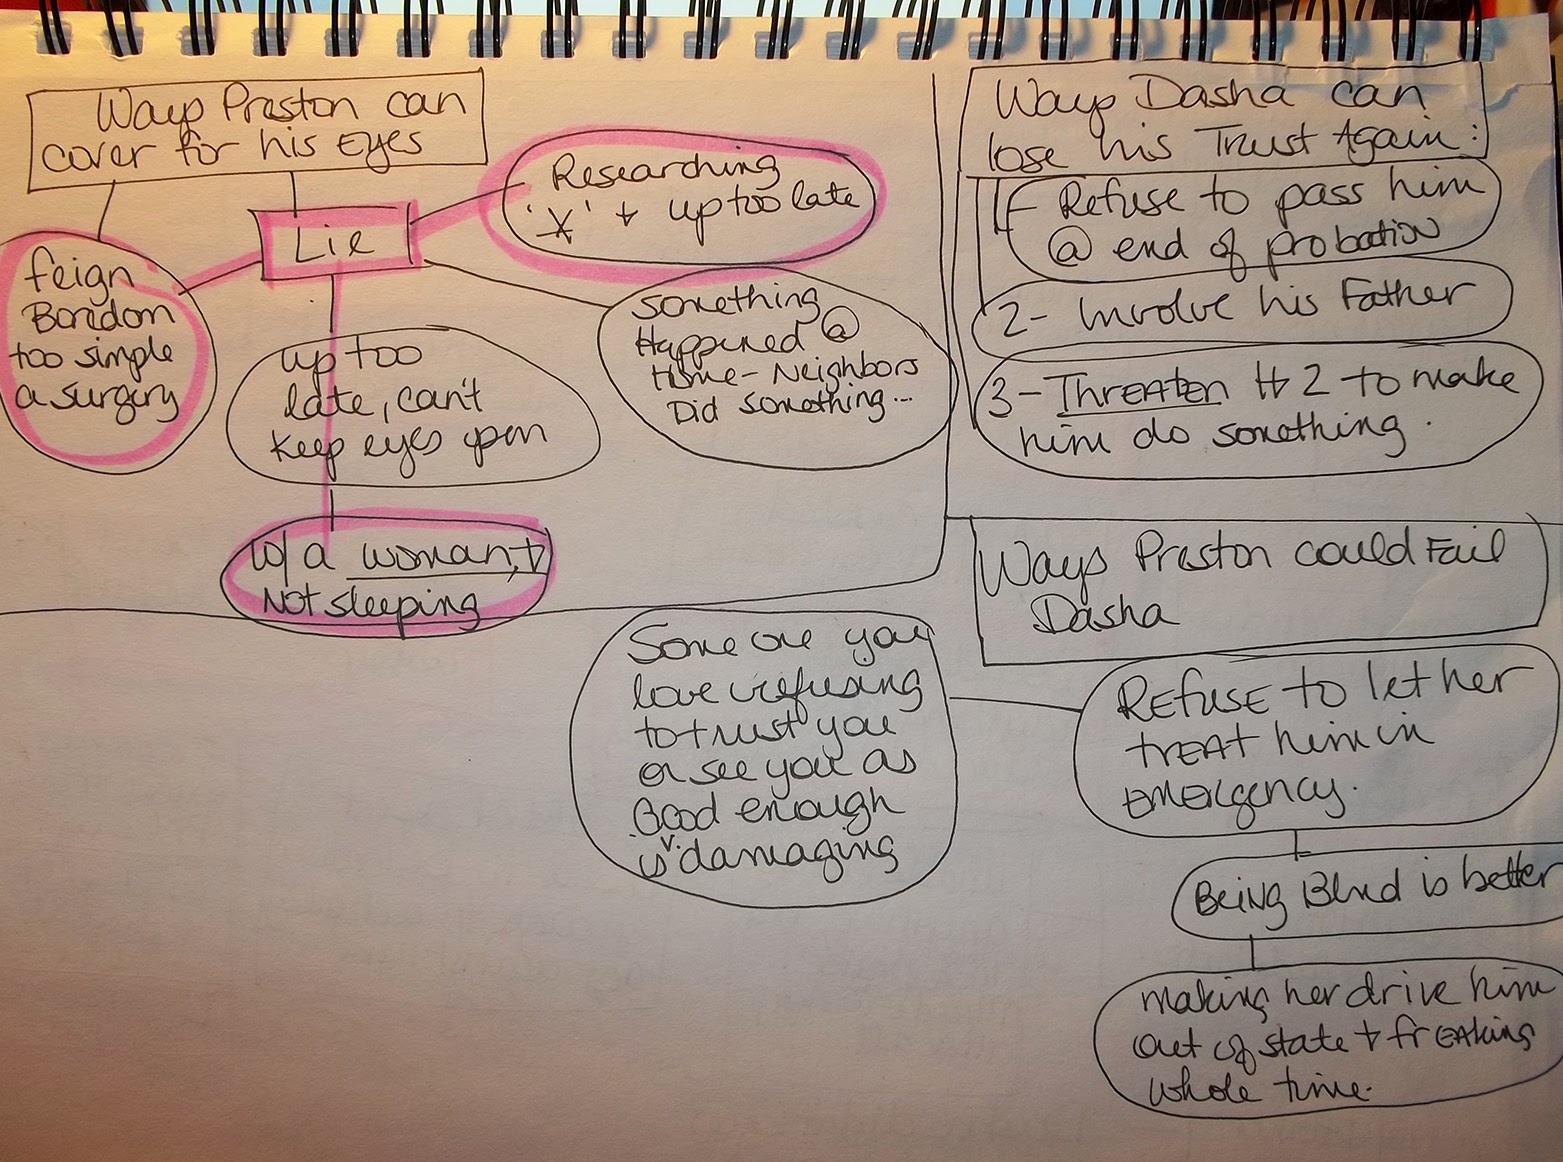 Ways Preston can
cover for his Eyes
Lie
Researching
'X' + up too late
feign
Boridom
too simple
a surgery
up too
late, can't
keep eyes open
Something
Happened @
Home - Neighbors
Did something...
w/a woman, +
Not sleeping
Ways Dasha can
lose his Trust Again:
Refuse to pass him
@ end of probation
2- Involve his Father
3- Threaten #2 to make
him do something.
Ways Preston could Fail
Dasha
Refuse to let her
treat him in
emergency.
Someone you
love refusing
to trust you
or see you as
Good enough
is v. damaging
Being Blind is better
making her drive him
out of state + freaking
whole time.